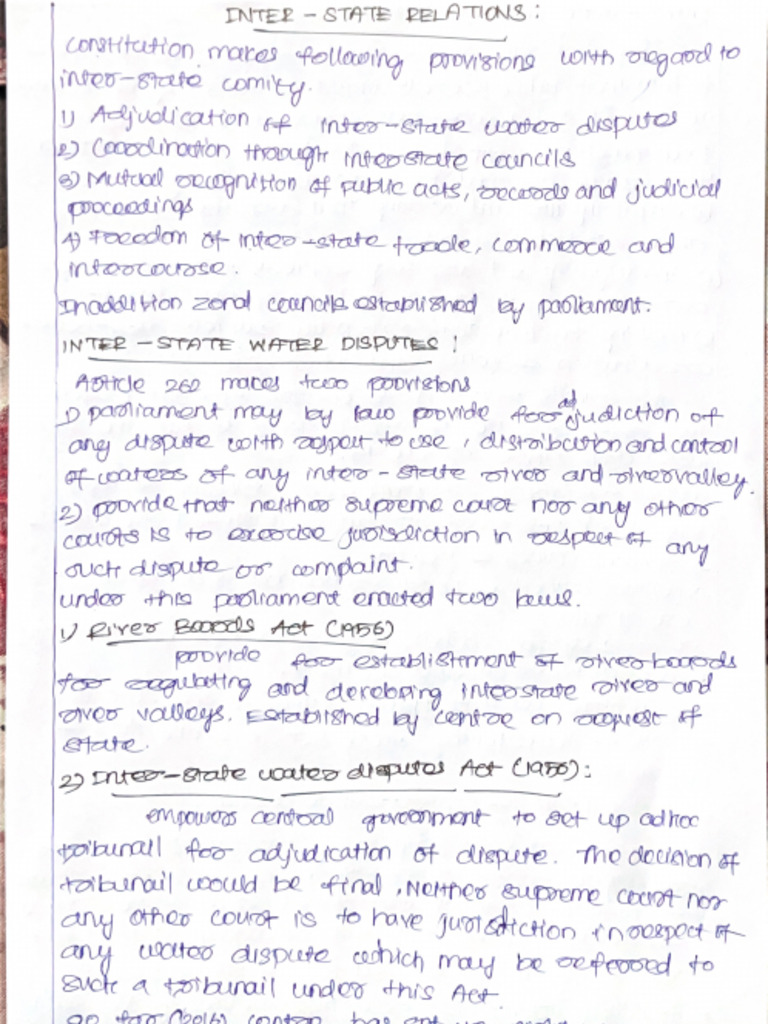 INTER - STATE RELATIONS :
constitution makes following provisions with regard to
inter-state comity.
1) Adjudication of inter-state water disputes
2) Coordination through interstate councils
3) Mutual recognition of public acts, records and judicial
proceedings
4) Freedom of inter-state trade, commerce and
intercourse.
In addition zonal councils established by parliament.
INTER - STATE WATER DISPUTES :
Article 262 makes two provisions
1) parliament may by law provide for adjudiction of
any dispute with respect to use, distribution and control
of waters of any inter-state river and river valley.
2) provide that neither supreme court nor any other
courts is to exercise jurisdiction in respect of any
such dispute or complaint.
under this parliament enacted two laws.
1) River Boards Act (1956)
provide for establishment of river boards
for regulating and developing interstate river and
river valleys. Established by centre on request of
state.
2) Inter-state water disputes Act (1956):
empowers central government to set up adhoc
tribunall for adjudication of dispute. The decision of
tribunail would be final, Neither supreme court nor
any other court is to have jurisdiction in respect of
any water dispute which may be referred to
such a tribunail under this Act.
so far (2016) center has set up